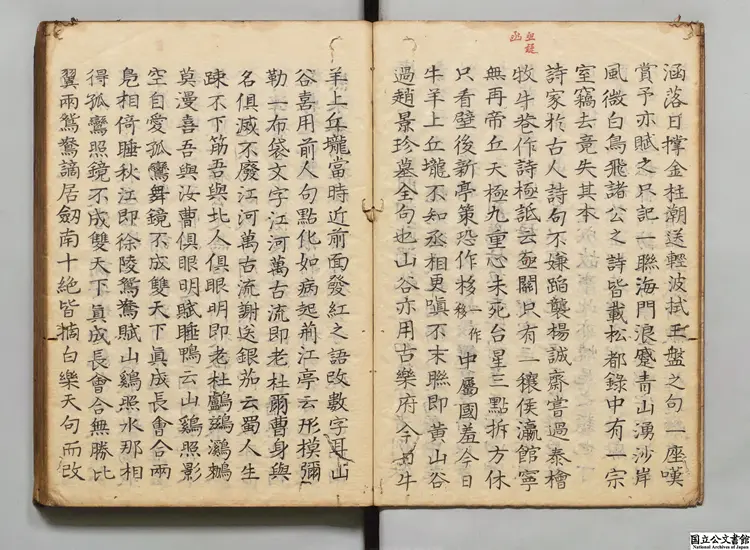 涵落日撑金柱潮送輕波拭玉盤之句一座嘆
賞予亦賦之只記一聯海門浪蹙青山湧沙岸
風微白鳥飛諸公之詩皆載松都錄中有一宗
室竊去竟失其本
詩家於古人詩句不嫌蹈襲楊誠齋嘗過秦檜
牧牛菴作詩極詆云亟關只有一穰侯瀛館寧
無再帝丘天極九重心未死台星三點拆方休
只看壁後新亭策恐作栘一作移中屬國羞今日
牛羊上丘壠不知丞相更嗔不末聯即黄山谷
過趙景珍墓全句也山谷亦用古樂府今日牛
羊上丘壠當時近前面發紅之語改數字耳山
谷喜用前人句點化如病起荊江亭云形模彌
勒一布袋文字江河萬古流即老杜爾曹身與
名俱滅不廢江河萬古流謝送銀茄云蜀人生
踈不下筯吾與北人俱眼明即老杜鸕鷀鸂鶒
莫漫喜吾與汝曹俱眼明賦睡鴨云山鷄照影
空自愛孤鸞舞鏡不成雙天下眞成長會合兩
鳬相倚睡秋江即徐陵鴛鴦賦山鷄照水那相
得孤鸞照鏡不成雙天下眞成長會合無勝比
翼兩鴛鴦謫居劔南十絕皆摘白樂天句而改
国立公文書館
National Archives of Japan